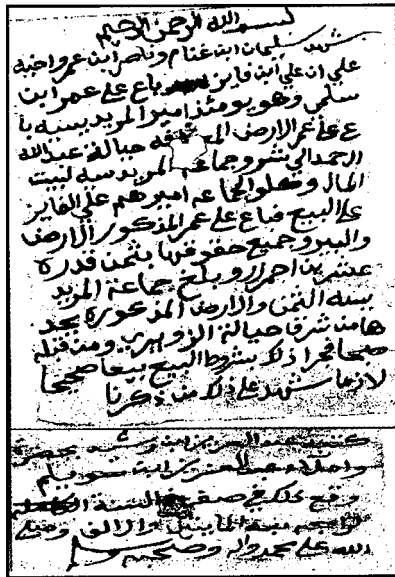 بسم الله الرحمن الرحيم
شهد سليمان ابن غنام وناصر ابن عمر واخيه
علي ان علي ابن فايز باع على عمر ابن
سلمى وهو يومئذ امير المريدسيه با
ع على عمر الارض حيالة عبدالله
الحمد الي شرو وجماعة المريدسيه لبيت
المال وكلو الجماعه اميرهم علي الفايز
على البيع فباع على عمر المذكور الارض
والبير وجميع حقوقها بثمن قدره
عشرين احمر وبلغ جماعة المريد
يسه الثمن والارض المذكوره يحد
ها من شرق حيالة ومن قبله
صحا فجرا ذلك بشروط البيع بيعا صحيحا
لازما شهد على ذلك من ذكرنا
كتبه عبد العزيز ابن وشهد
واملاه عبد العزيز ابن سويلم
وقع ذلك في صفر السنة
بعد المايتين والالف وصلى
الله على محمد واله وصحبه وسلم